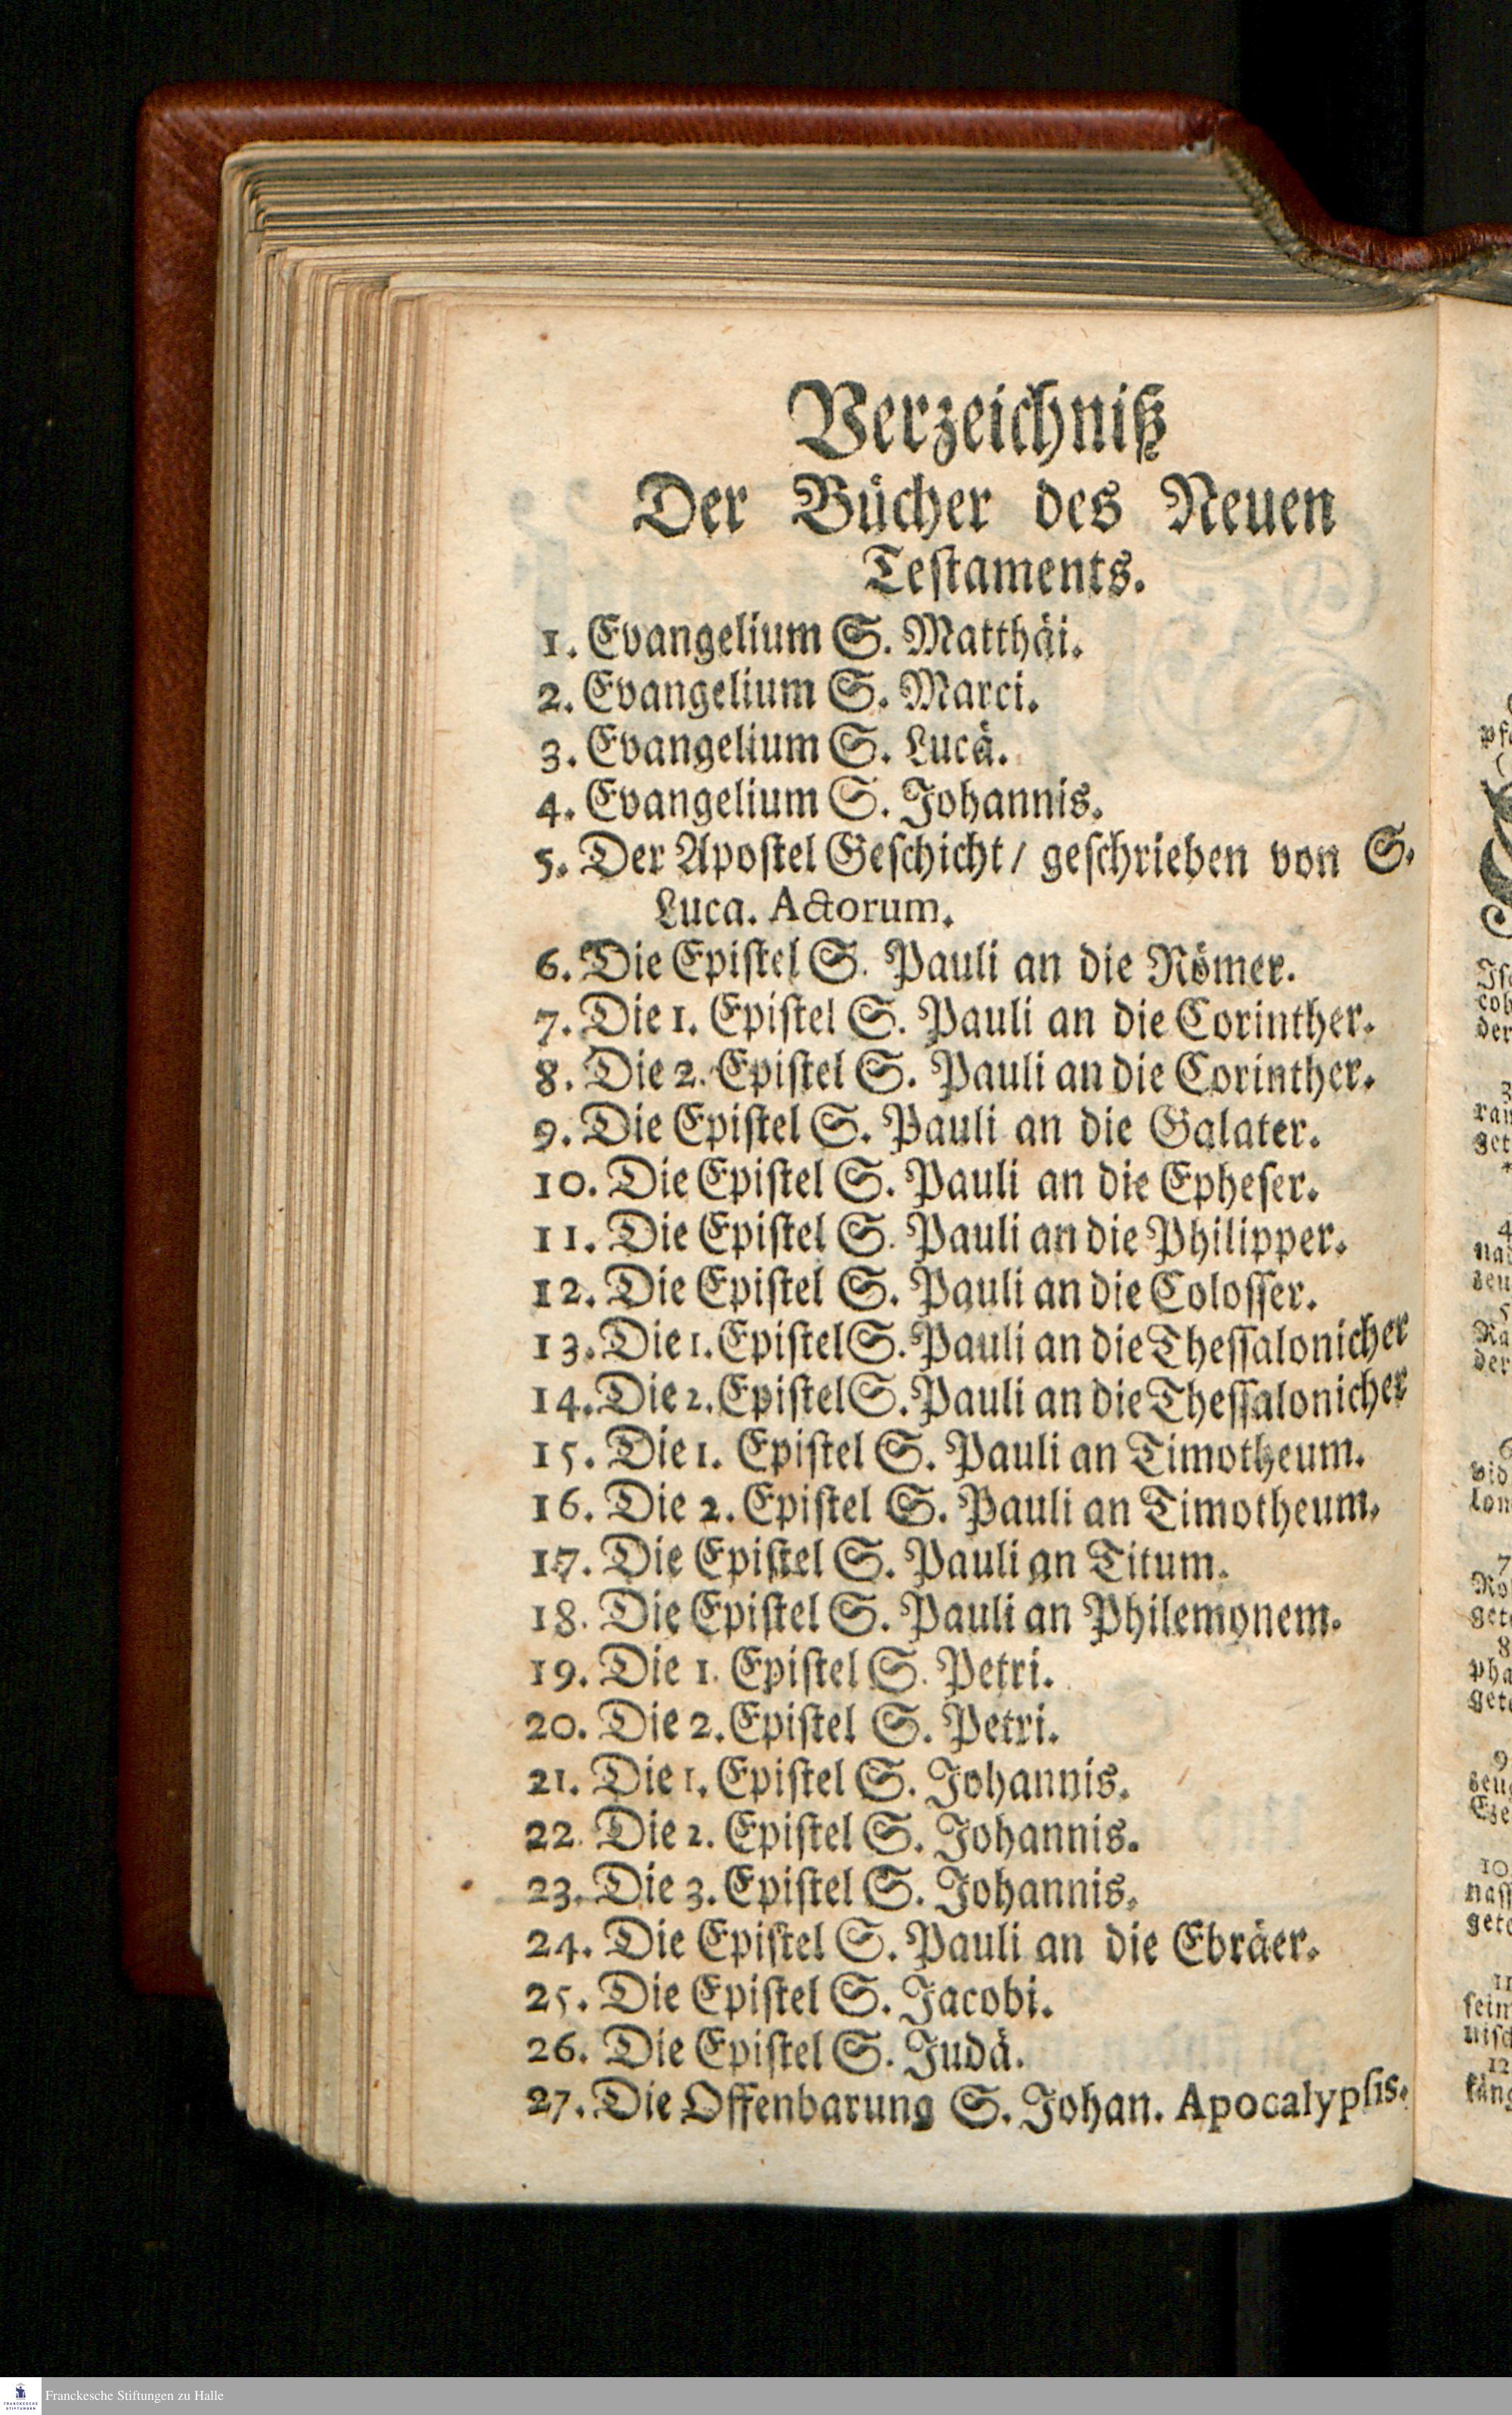 Verzeichniß
Der Bücher des Neuen
Testaments.
1. Evangelium S. Matthäi.
2. Evangelium S. Marci.
3. Evangelium S. Lucä.
4. Evangelium S. Johannis.
5. Der Apostel Geschicht / geschrieben von S.
Luca. Actorum.
6. Die Epistel S. Pauli an die Römer.
7. Die 1. Epistel S. Pauli an die Corinther.
8. Die 2. Epistel S. Pauli an die Corinther.
9. Die Epistel S. Pauli an die Galater.
10. Die Epistel S. Pauli an die Epheser.
11. Die Epistel S. Pauli an die Philipper.
12. Die Epistel S. Pauli an die Colosser.
13. Die 1. Epistel S. Pauli an die Thessalonicher
14. Die 2. Epistel S. Pauli an die Thessalonicher
15. Die 1. Epistel S. Pauli an Timotheum.
16. Die 2. Epistel S. Pauli an Timotheum.
17. Die Epistel S. Pauli an Titum.
18. Die Epistel S. Pauli an Philemonem.
19. Die 1. Epistel S. Petri.
20. Die 2. Epistel S. Petri.
21. Die 1. Epistel S. Johannis.
22. Die 2. Epistel S. Johannis.
23. Die 3. Epistel S. Johannis.
24. Die Epistel S. Pauli an die Ebräer.
25. Die Epistel S. Jacobi.
26. Die Epistel S. Judä.
27. Die Offenbarung S. Johan. Apocalypsis.
Franckesche Stiftungen zu Halle